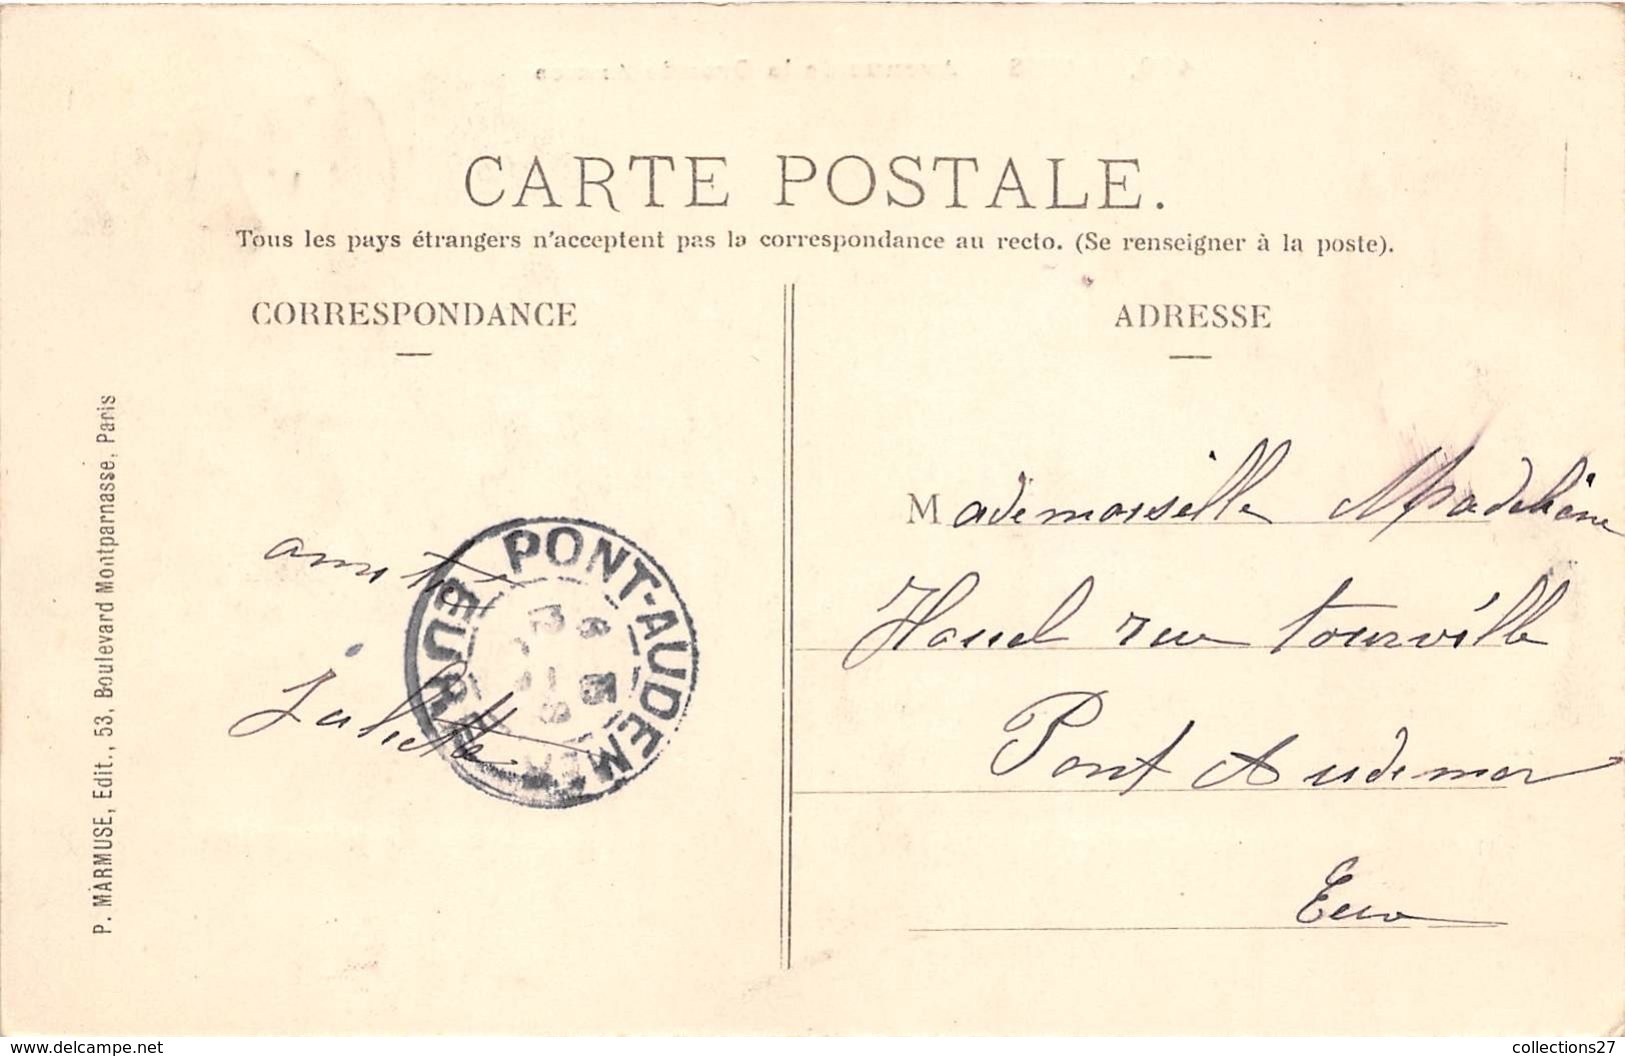 CARTE POSTALE.
Tous les pays étrangers n'acceptent pas la correspondance au recto. (Se renseigner à la poste).
CORRESPONDANCE
amitié
Juliette
PONT-AUDEMER
EURE
P. MARMUSE, Edit., 53, Boulevard Montparnasse, Paris
ADRESSE
Mademoiselle Madeleine
rue tourville
Pont Audemer
Eure
www.delcampe.net
collections27